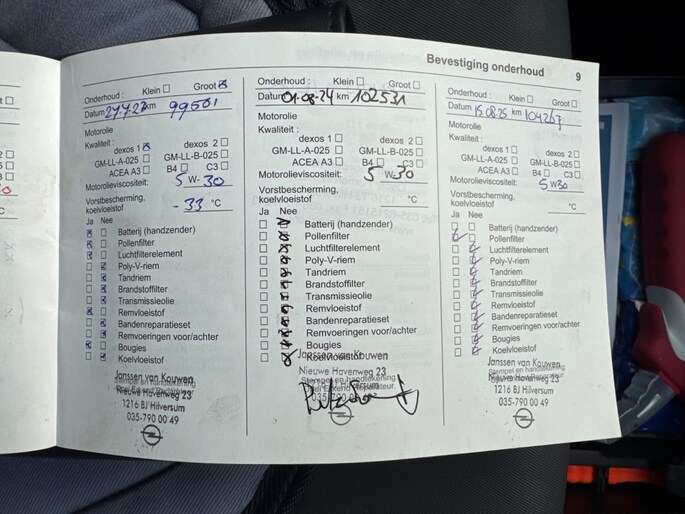 Bevestiging onderhoud 9
Onderhoud : Klein Groot
Datum 27.7.23 km 99501
Motorolie
Kwaliteit :
dexos 1 dexos 2
GM-LL-A-025 GM-LL-B-025
ACEA A3 B4 C3
Motorolieviscositeit: 5 W- 30
Vorstbescherming,
koelvloeistof - 33 °C
Ja Nee
Batterij (handzender)
Pollenfilter
Luchtfilterelement
Poly-V-riem
Tandriem
Brandstoffilter
Transmissieolie
Remvloeistof
Bandenreparatieset
Remvoeringen voor/achter
Bougies
Koelvloeistof
Janssen van Kouwen
Stempel en handtekening
Nieuwe Havenweg 23
1216 BJ Hilversum
035-790 00 49
Onderhoud : Klein Groot
Datum 01-08-24 km 102531
Motorolie
Kwaliteit :
dexos 1 dexos 2
GM-LL-A-025 GM-LL-B-025
ACEA A3 B4 C3
Motorolieviscositeit: 5 W- 30
Vorstbescherming,
koelvloeistof °C
Ja Nee
Batterij (handzender)
Pollenfilter
Luchtfilterelement
Poly-V-riem
Tandriem
Brandstoffilter
Transmissieolie
Remvloeistof
Bandenreparatieset
Remvoeringen voor/achter
Bougies
Koelvloeistof
Janssen van Kouwen
Nieuwe Havenweg 23
Stempel en handtekening
Hilversum
035-790
Onderhoud : Klein Groot
Datum 15.08.25 km 104267
Motorolie
Kwaliteit :
dexos 1 dexos 2
GM-LL-A-025 GM-LL-B-025
ACEA A3 B4 C3
Motorolieviscositeit: 5 W30
Vorstbescherming,
koelvloeistof °C
Ja Nee
Batterij (handzender)
Pollenfilter
Luchtfilterelement
Poly-V-riem
Tandriem
Brandstoffilter
Transmissieolie
Remvloeistof
Bandenreparatieset
Remvoeringen voor/achter
Bougies
Koelvloeistof
Janssen van Kouwen
Stempel en handtekening
Nieuwe Havenweg 23
1216 BJ Hilversum
035-790 00 49